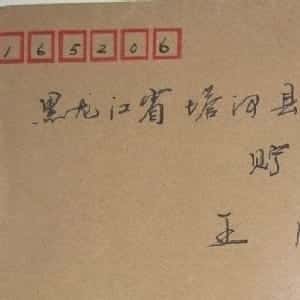 165206
黑龙江省塔河县
贮
王